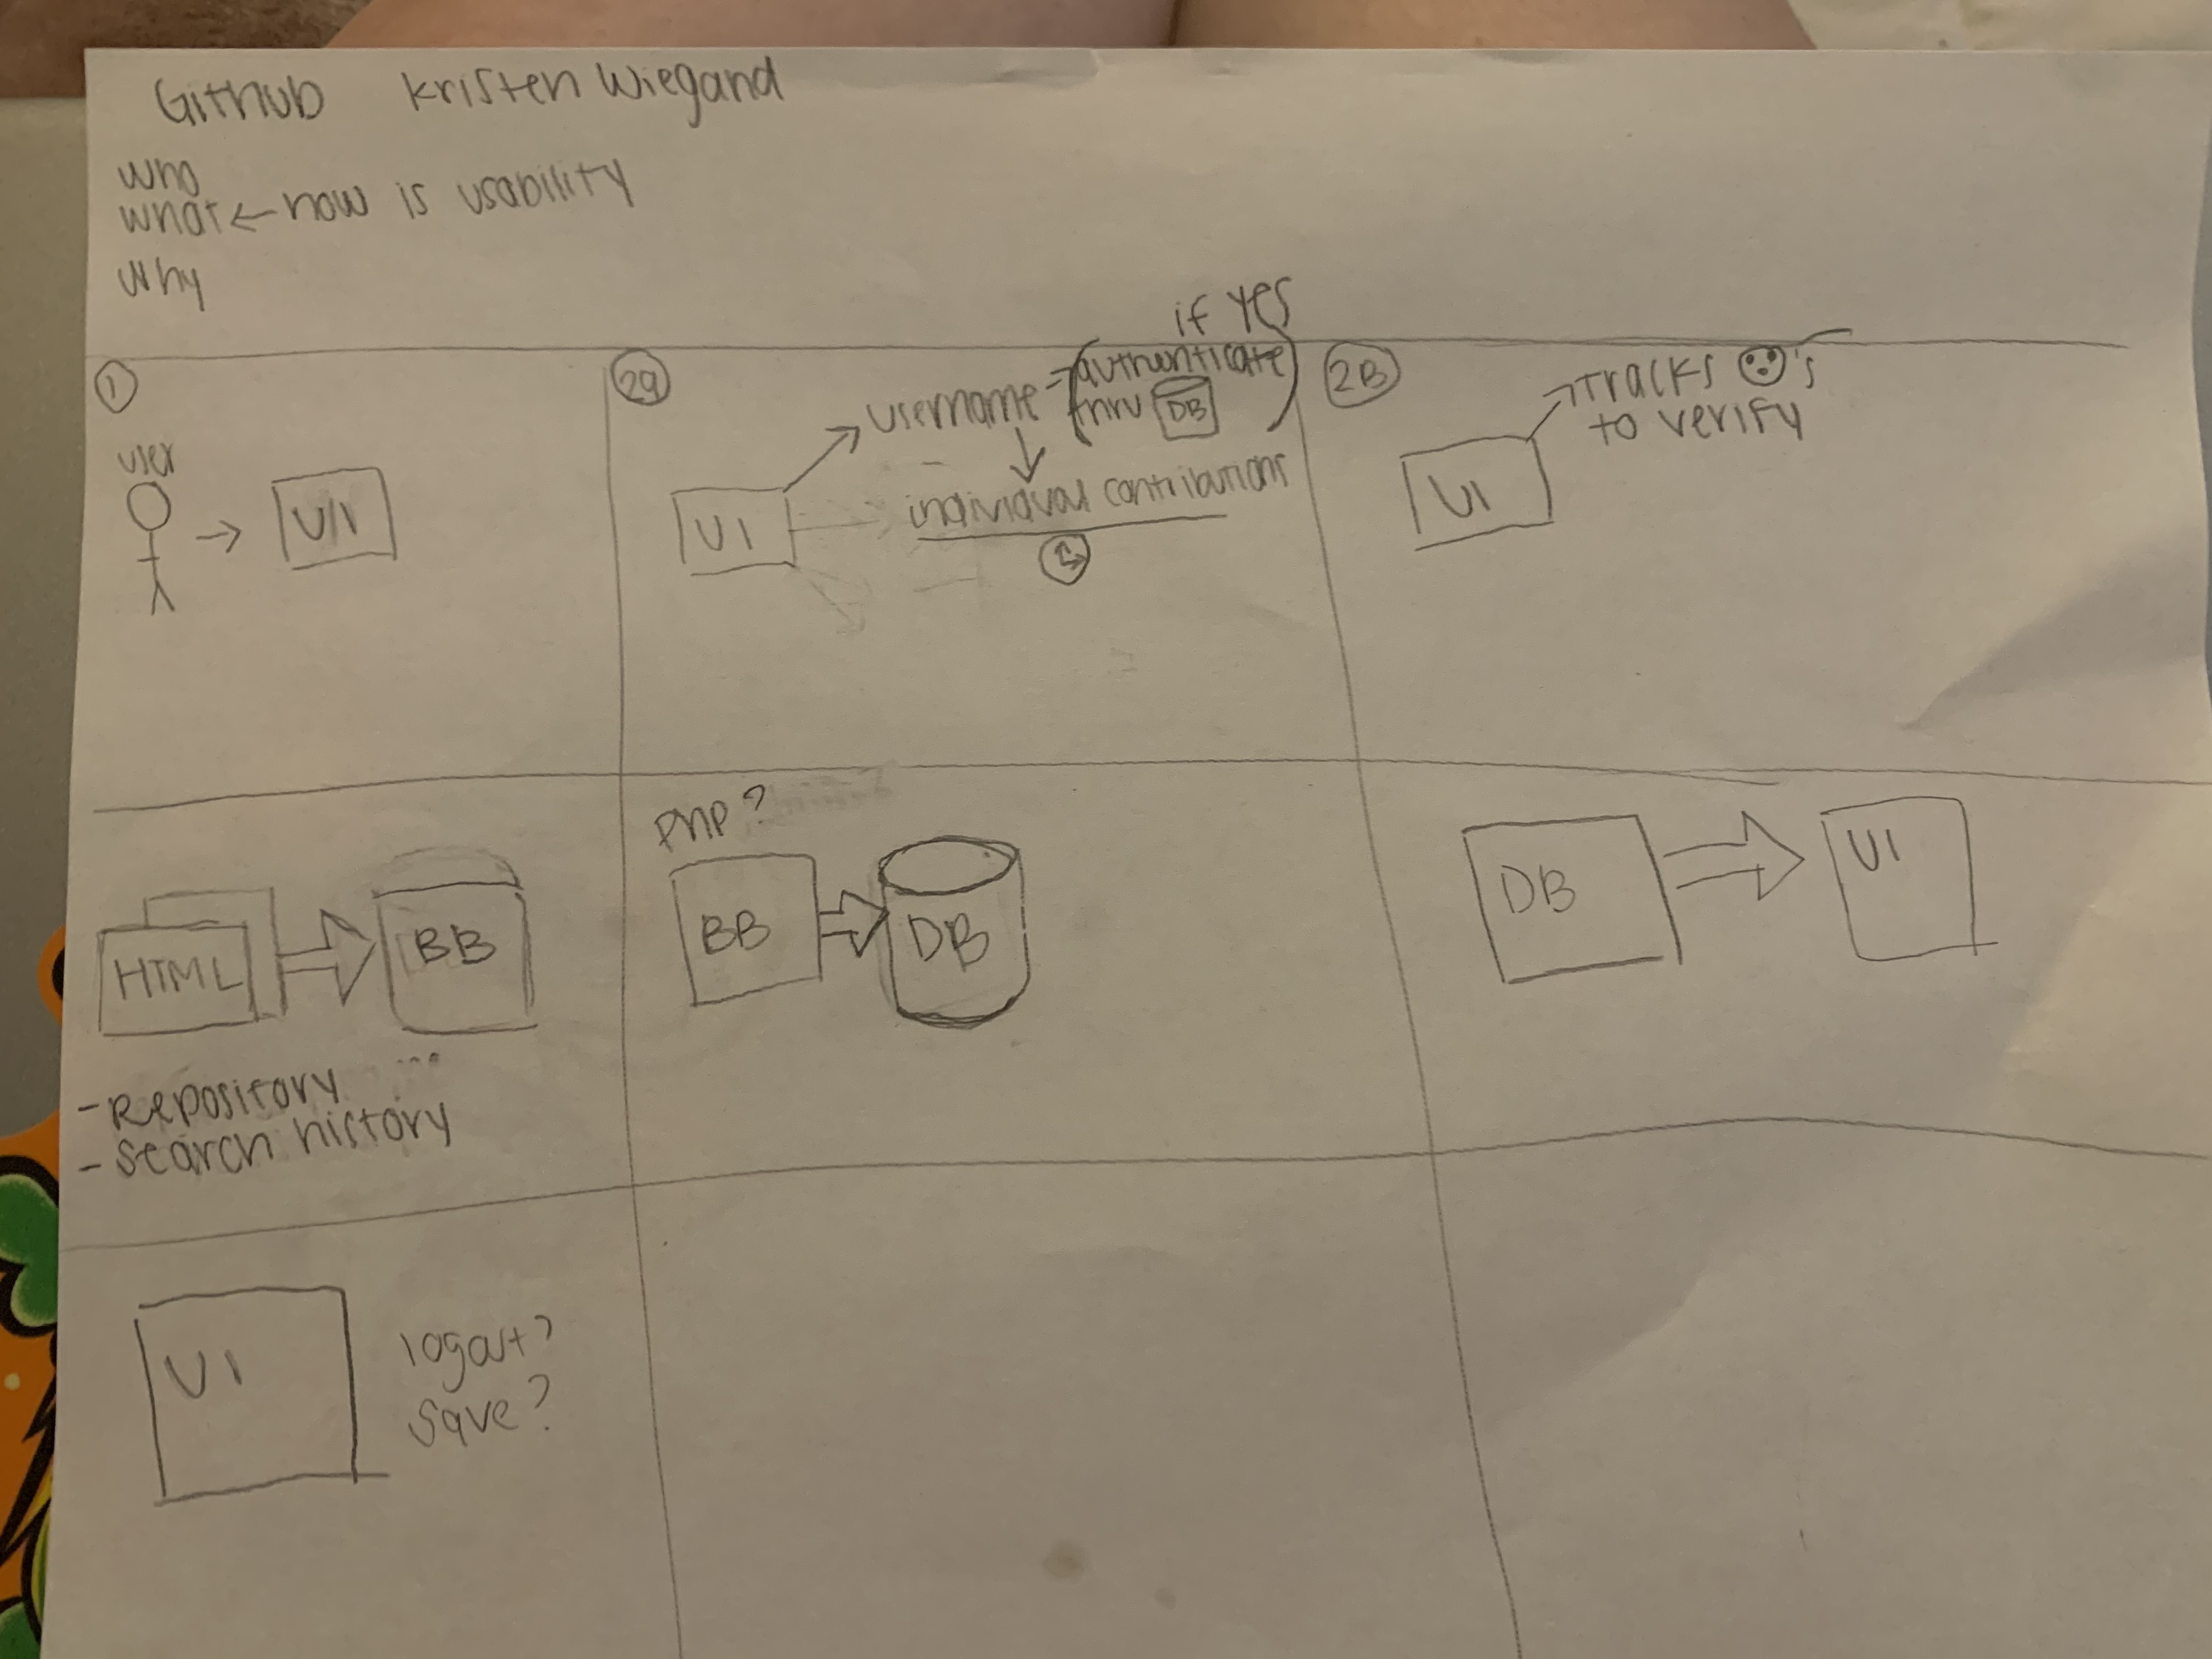 GitHub Kristen Wiegand
who
what ← how is usability
why
1
user
UI
2a
UI
if yes
username - authenticate
thru DB
individual contributions
2B
UI
tracks 's
to verify
HTML
BB
- Repository ...
- search history
PHP?
BB
DB
DB
UI
UI
logout?
save?